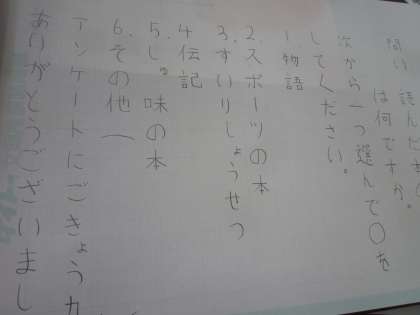 問い 読んだ
は何ですか。
次から一つ選んで〇を
してください。
1.物語
2.スポーツの本
3.すいりしょうせつ
4伝記
5.しゅ味の本
6.その他(
アンケートにごきょう力
ありがとうございまし